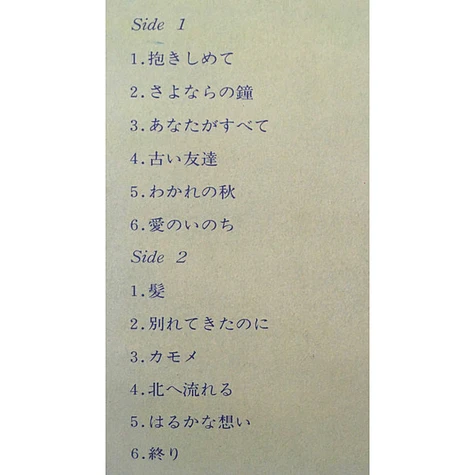 Side 1
1.抱きしめて
2.さよならの鐘
3.あなたがすべて
4.古い友達
5.わかれの秋
6.愛のいのち
Side 2
1.髪
2.別れてきたのに
3.カモメ
4.北へ流れる
5.はるかな想い
6.終り